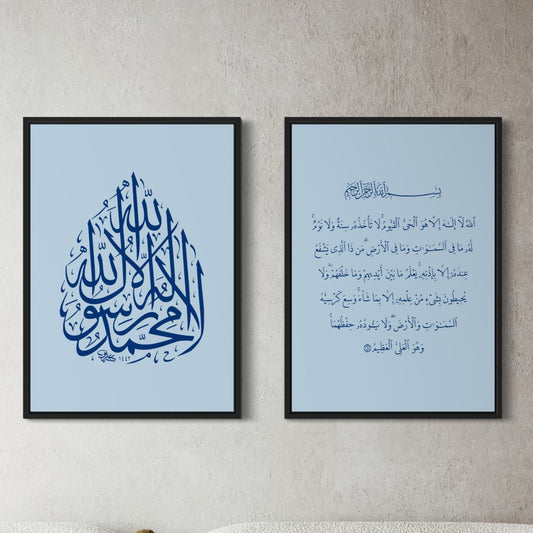 لا إله إلا الله محمد رسول الله
١٤٤٢
بِسْمِ ٱللَّهِ ٱلرَّحْمَٰنِ ٱلرَّحِيمِ
ٱللَّهُ لَآ إِلَٰهَ إِلَّا هُوَ ٱلْحَىُّ ٱلْقَيُّومُ ۚ لَا تَأْخُذُهُۥ سِنَةٌ وَلَا نَوْمٌ ۚ
لَّهُۥ مَا فِى ٱلسَّمَٰوَٰتِ وَمَا فِى ٱلْأَرْضِ ۗ مَن ذَا ٱلَّذِى يَشْفَعُ
عِندَهُۥٓ إِلَّا بِإِذْنِهِۦ ۚ يَعْلَمُ مَا بَيْنَ أَيْدِيهِمْ وَمَا خَلْفَهُمْ ۖ وَلَا
يُحِيطُونَ بِشَىْءٍ مِّنْ عِلْمِهِۦٓ إِلَّا بِمَا شَآءَ ۚ وَسِعَ كُرْسِيُّهُ
ٱلسَّمَٰوَٰتِ وَٱلْأَرْضَ ۖ وَلَا يَـُٔودُهُۥ حِفْظُهُمَا ۚ
وَهُوَ ٱلْعَلِىُّ ٱلْعَظِيمُ